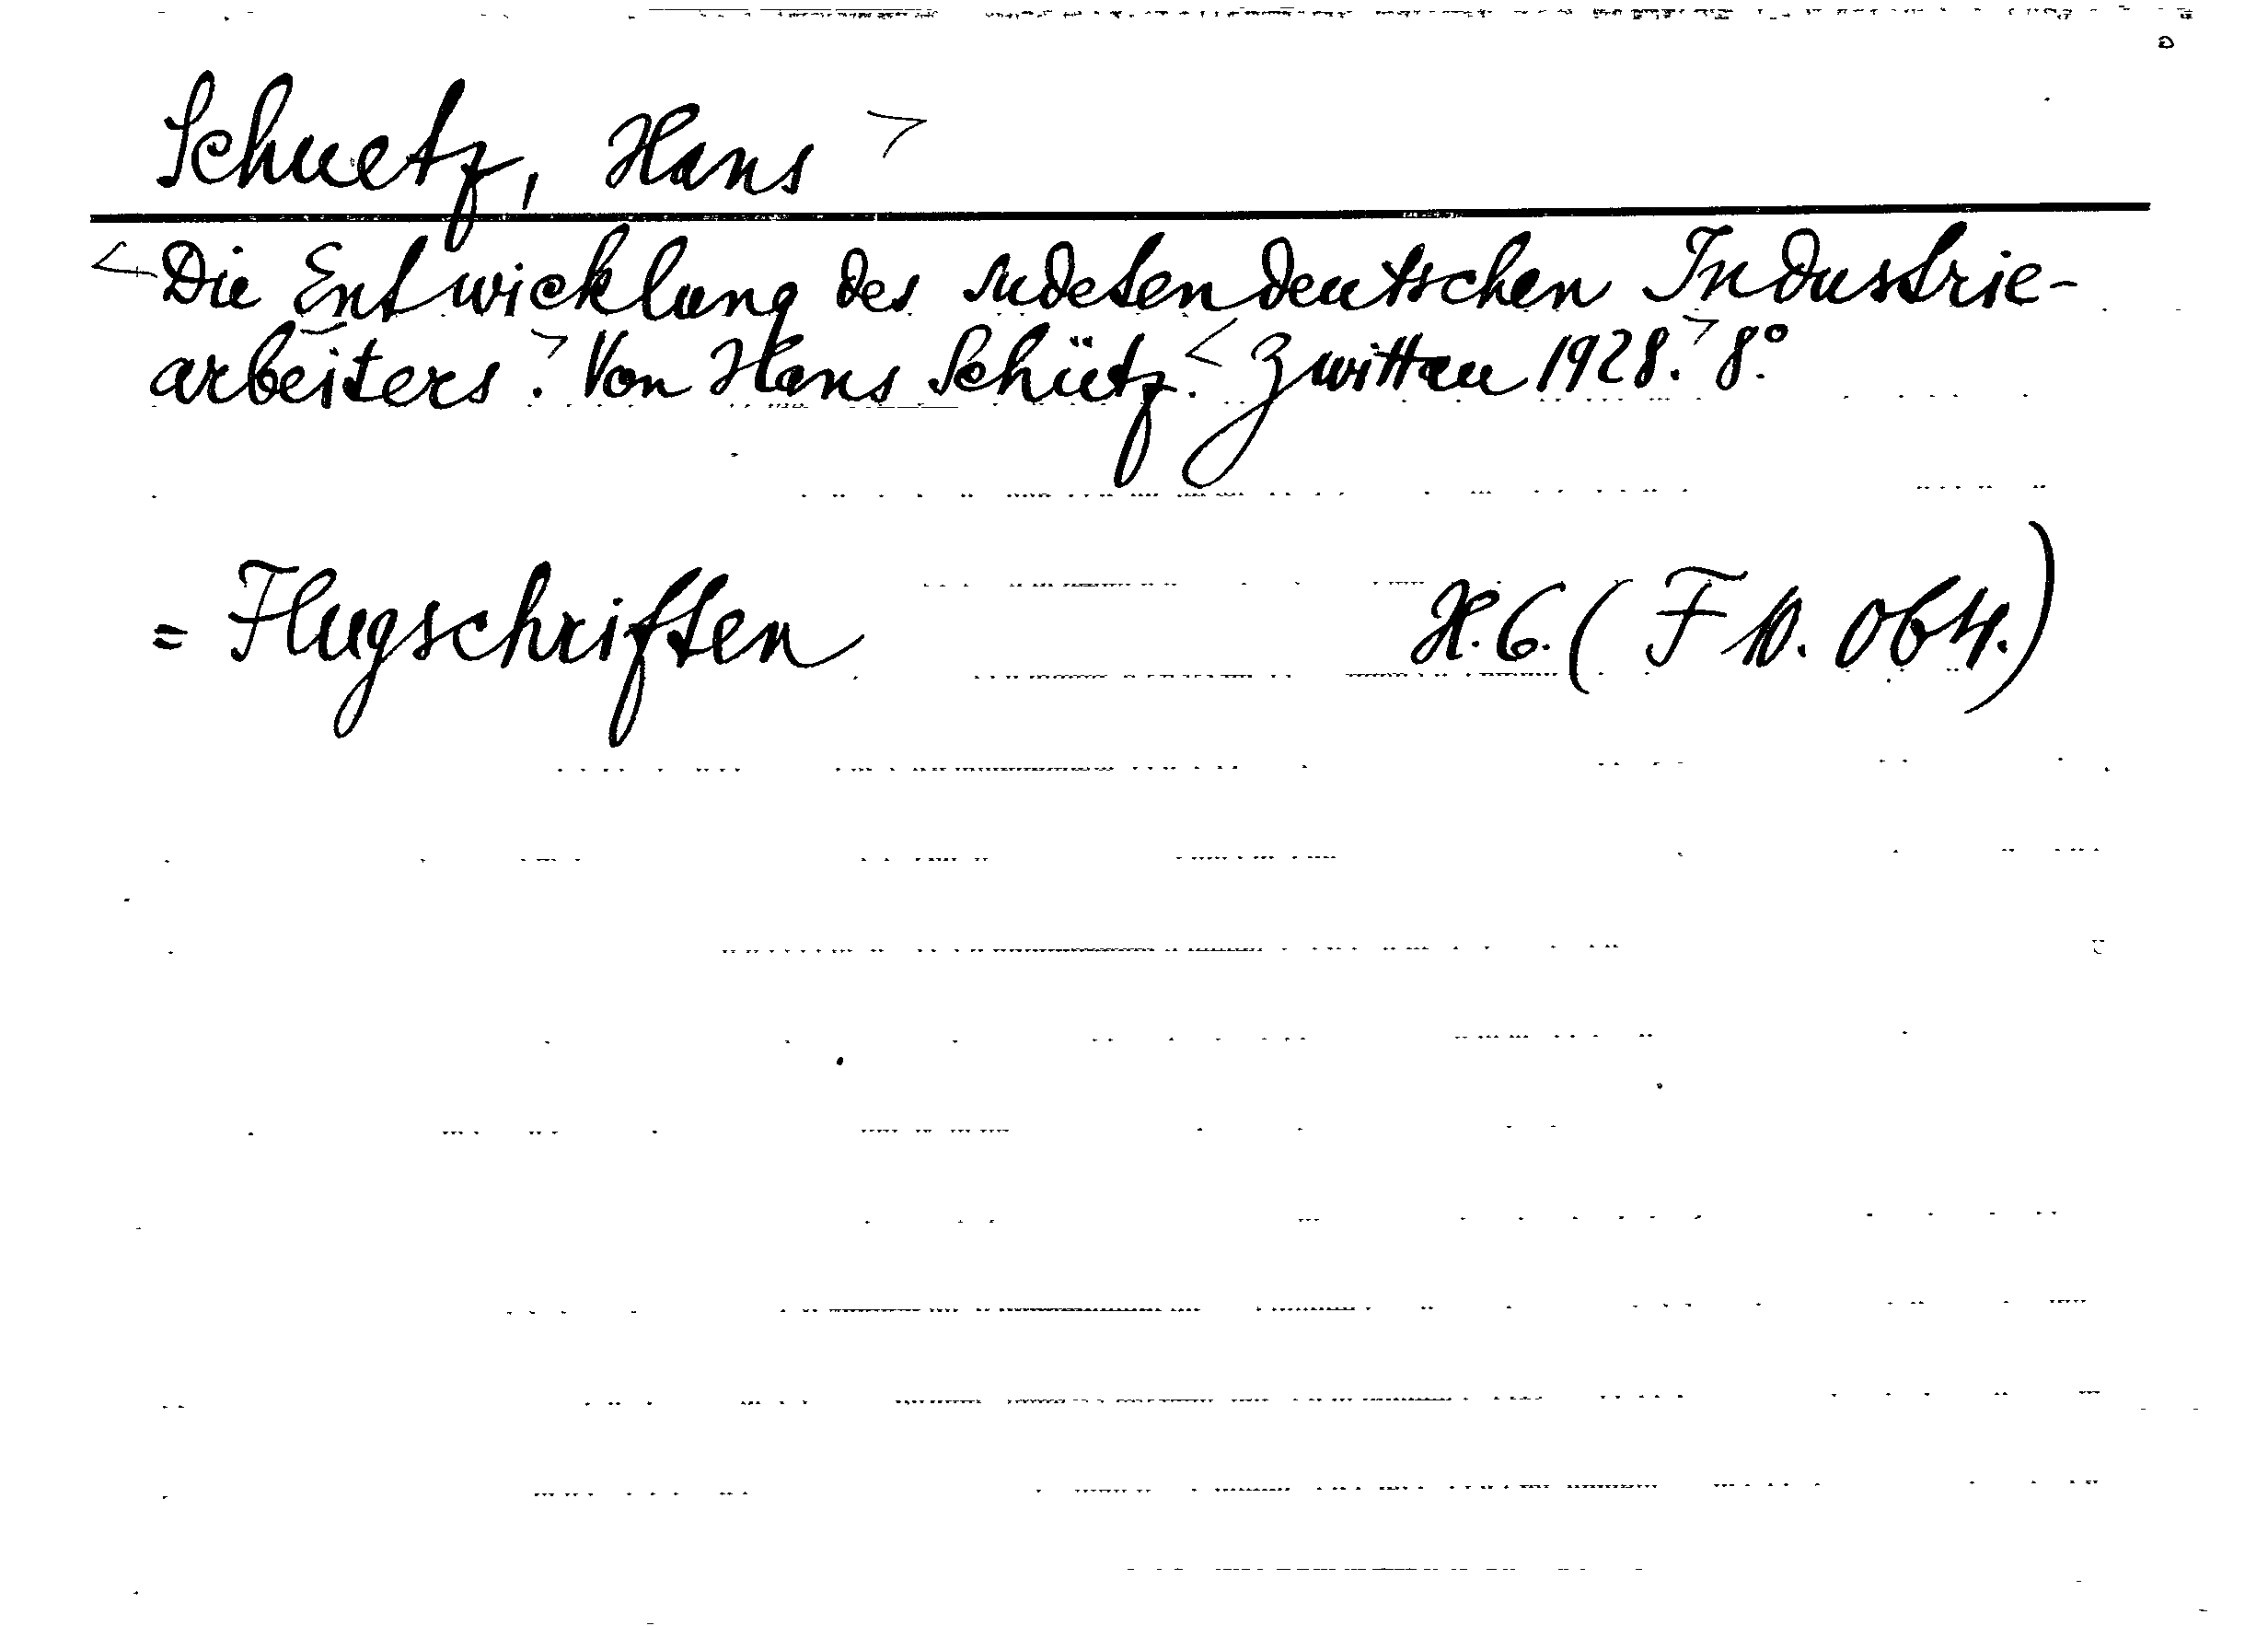 Schuetz, Hans >
<Die Entwicklung des sudetendeutschen Industrie-
arbeiters.> Von Hans Schütz.< Zwittau 1928.> 8°.
= Flugschriften H.G. (F 10. 064.)